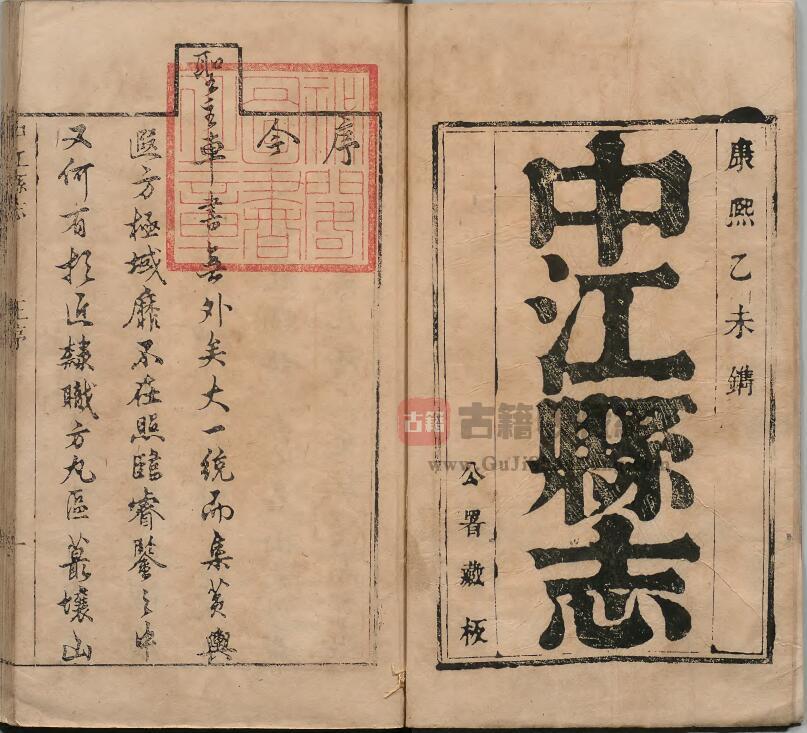 康熙乙未鐫
中江縣志
公署藏板
古籍
古籍
www.GuJi
序
今
聖主車書無外矣大一統而集黃輿
醫方極域靡不在照臨睿鑒之中
又何有於近隸職方丸區蕞壤山
中江縣志
序